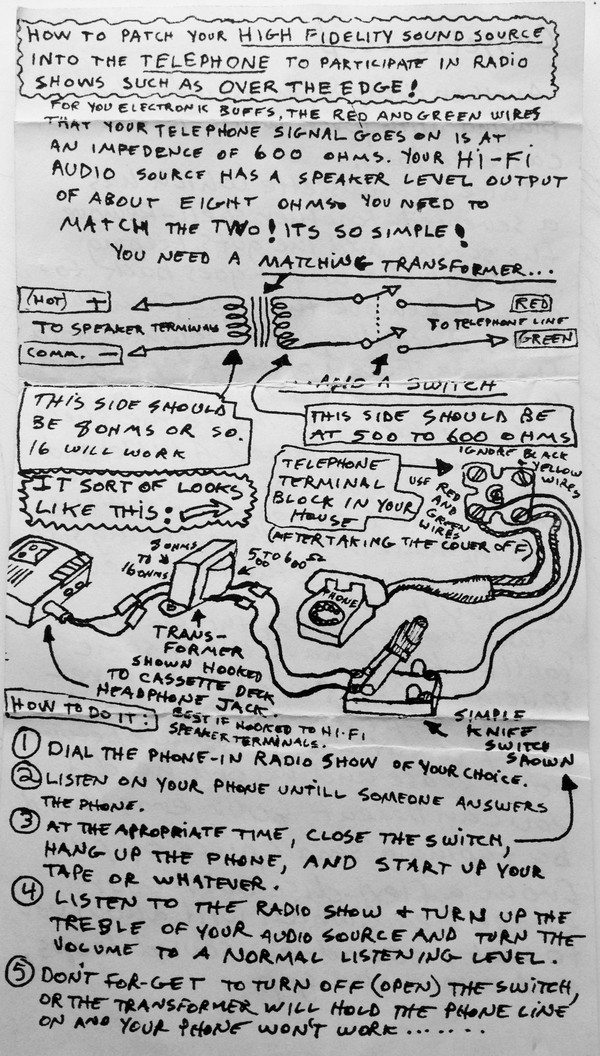 HOW TO PATCH YOUR HIGH FIDELITY SOUND SOURCE
INTO THE TELEPHONE TO PARTICIPATE IN RADIO
SHOWS SUCH AS OVER THE EDGE!
FOR YOU ELECTRONIC BUFFS, THE RED AND GREEN WIRES
THAT YOUR TELEPHONE SIGNAL GOES ON IS AT
AN IMPEDENCE OF 600 OHMS. YOUR HI-FI
AUDIO SOURCE HAS A SPEAKER LEVEL OUTPUT
OF ABOUT EIGHT OHMS. YOU NEED TO
MATCH THE TWO! ITS SO SIMPLE!
YOU NEED A MATCHING TRANSFORMER...
(HOT) +
TO SPEAKER TERMINALS
COMM. -
RED
TO TELEPHONE LINE
GREEN
...AND A SWITCH
THIS SIDE SHOULD
BE 8 OHMS OR SO.
16 WILL WORK
THIS SIDE SHOULD BE
AT 500 TO 600 OHMS
IT SORT OF LOOKS
LIKE THIS:
TELEPHONE
TERMINAL
BLOCK IN YOUR
HOUSE
(AFTER TAKING THE COVER OFF)
USE RED
AND
GREEN
WIRES
IGNORE BLACK
YELLOW
WIRES
8 OHMS
TO
16 OHMS
500 TO 600 Ω
PHONE
TRANS-
FORMER
SHOWN HOOKED
TO CASSETTE DECK
HEADPHONE JACK.
BEST IF HOOKED TO HI-FI
SPEAKER TERMINALS.
SIMPLE
KNIFE
SWITCH
SHOWN
HOW TO DO IT:
1 DIAL THE PHONE-IN RADIO SHOW OF YOUR CHOICE.
2 LISTEN ON YOUR PHONE UNTILL SOMEONE ANSWERS
THE PHONE.
3 AT THE APROPRIATE TIME, CLOSE THE SWITCH,
HANG UP THE PHONE, AND START UP YOUR
TAPE OR WHATEVER.
4 LISTEN TO THE RADIO SHOW + TURN UP THE
TREBLE OF YOUR AUDIO SOURCE AND TURN THE
VOLUME TO A NORMAL LISTENING LEVEL.
5 DON'T FOR-GET TO TURN OFF (OPEN) THE SWITCH,
OR THE TRANSFORMER WILL HOLD THE PHONE LINE
ON AND YOUR PHONE WON'T WORK.......